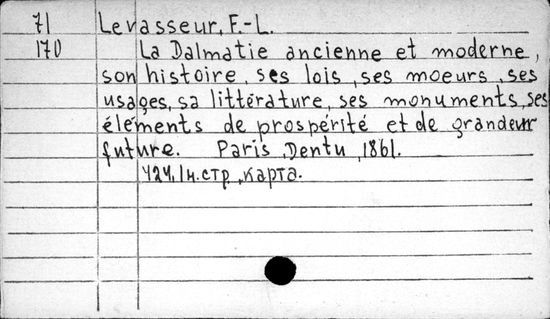 71 Levasseur, F.-L.
170 La Dalmatie ancienne et moderne,
son histoire, ses lois, ses moeurs, ses
usages, sa littérature, ses monuments, ses
éléments de prospérité et de grandeur
future. Paris, Dentu, 1861.
424, 1н.стр., карта.